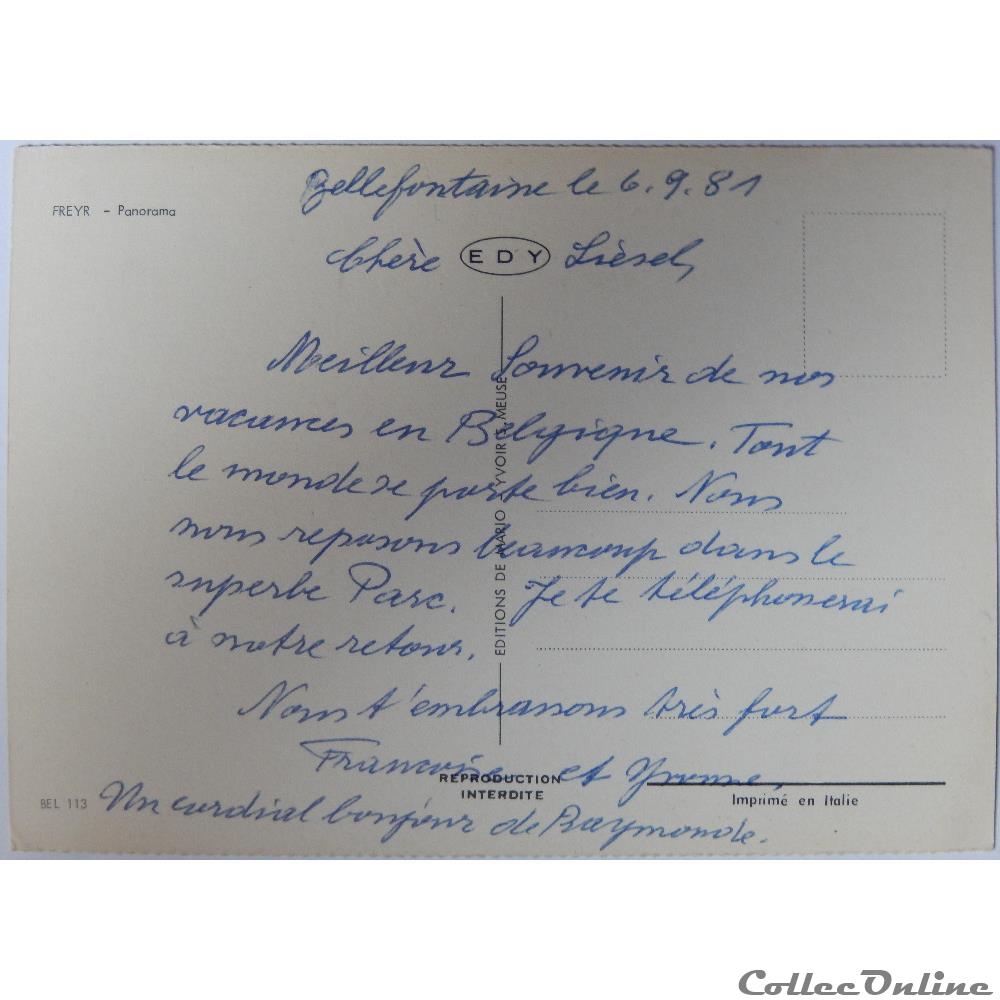 Bellefontaine le 6.9.81
FREYR - Panorama
Chère EDY Lièsel,
Meilleur Souvenir de nos
vacances en Belgique. Tout
le monde se porte bien. Nous
nous reposons beaucoup dans le
superbe Parc. Je te téléphonerai
à notre retour.
Nous t'embrassons très fort
Françoise et Yvonne,
EDITIONS DE MARIO YVOIR S/MEUSE
REPRODUCTION
INTERDITE
Imprimé en Italie
BEL 113
Un cordial bonjour de Raymonde.
CollecOnline